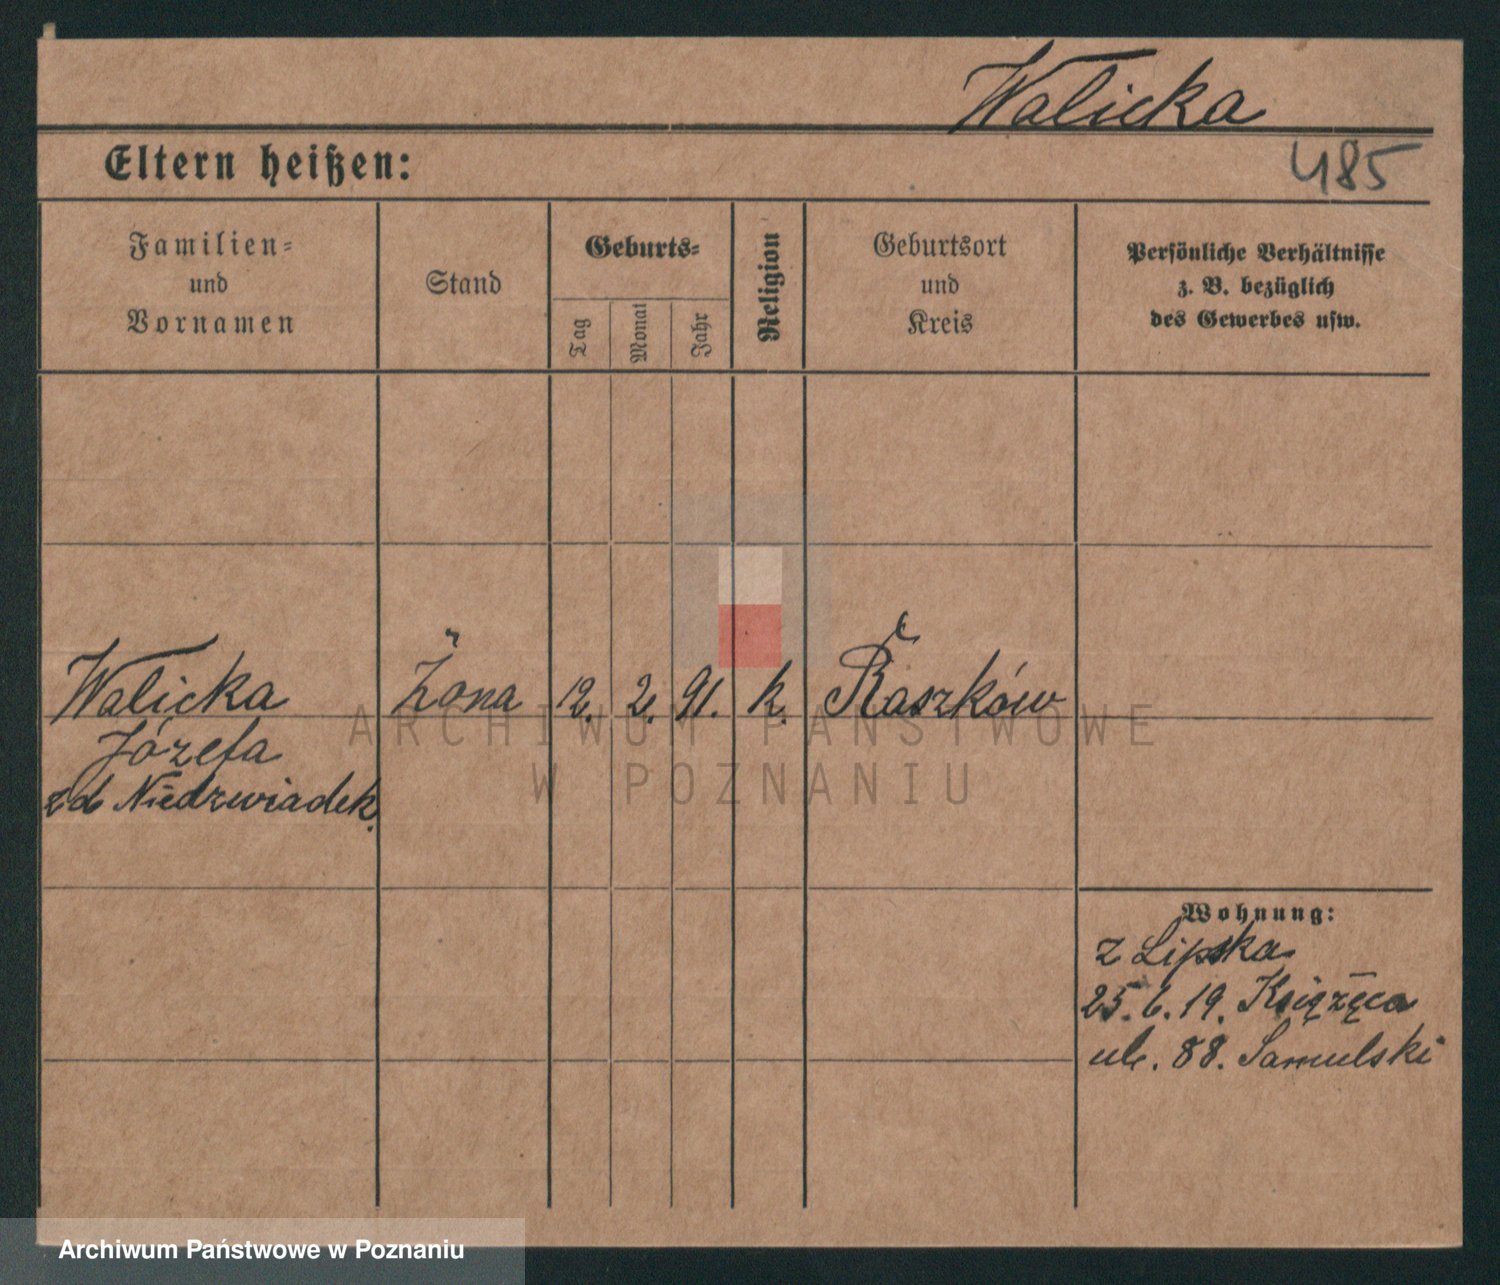 Walicka
485
Eltern heißen:
Familien-
und
Vornamen
Stand
Geburts-
Tag
Monat
Jahr
Religion
Geburtsort
und
Kreis
Persönliche Verhältnisse
z. B. bezüglich
des Gewerbes usw.
Walicka Żona 12. 2. 91. k. Raszków
Józefa
zd Niedzwiadek.
Wohnung:
z Lipska
25. 6. 19. Książęca
ul. 88. Samulski
ARCHIWUM PAŃSTWOWE
W POZNANIU
Archiwum Państwowe w Poznaniu